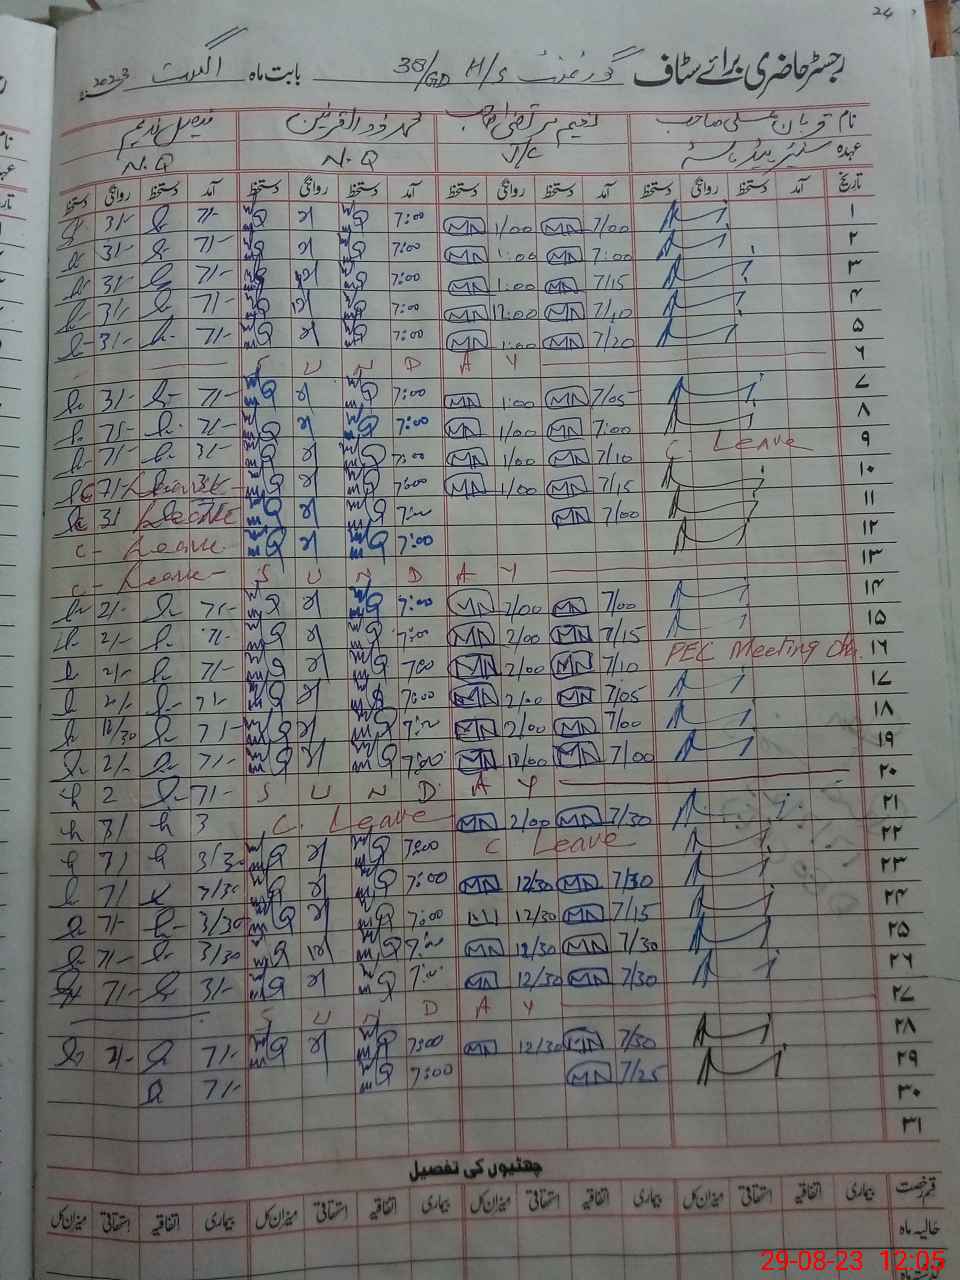 24
رجسٹر حاضری برائے سٹاف گورنمنٹ H/S 38/GD بابت ماہ اگست 2023
نام قربان علی صاحب نعیم مرتضیٰ صاحب محمد ذوالقرنین فیصل ندیم
عہدہ J/C N.Q N.Q
تاریخ آمد دستخط روانگی دستخط آمد دستخط روانگی دستخط آمد دستخط روانگی دستخط آمد دستخط روانگی دستخط
۱ 7/00 MN 1/00 MN 7:00 7/- 3/-
۲ 7:00 MN 1:00 MN 7:00 7/- 3/-
۳ 7/15 MN 1:00 MN 7:00 7/- 3/-
۴ 7/10 MN 12:00 MN 7:00 7/- 3/-
۵ 7/20 MN 1:00 MN 7:00 7/- 3/-
۶ S U N D A Y
۷ 7/05 MN 1:00 MN 7:00 7/- 3/-
۸ 7:00 MN 1/00 MN 7:00 7/-
۹ C. Leave 7/10 MN 1/00 MN 7:00 3/- 7/-
۱۰ 7/15 MN 1/00 MN 7:00 Leave 7/-
۱۱ 7/00 MN 7:00 Leave 3/
۱۲ 7:00 C - Leave
۱۳ S U N D A Y C - Leave
۱۴ 7/00 MN 2/00 MN 7:00 7/- 2/-
۱۵ 7/15 MN 2/00 MN 7:00 7/- 2/-
۱۶ PEC Meeting 7/10 MN 2/00 MN 7:00 7/- 2/-
۱۷ 7/05 MN 2/00 MN 7:00 7/- 2/-
۱۸ 7/00 MN 2/00 MN 7:00 7/- 12/30
۱۹ 7/00 MN 12/00 MN 7:00 7/- 2/-
۲۰ S U N D A Y 7/- 2
۲۱ 7/30 MN 2/00 MN C. Leave 3 7/
۲۲ C Leave 7:00 3/30 7/
۲۳ 7/30 MN 12/30 MN 7:00 3/30 7/
۲۴ 7/15 MN 12/30 7:00 3/30 7/-
۲۵ 7/30 MN 12/30 MN 7:00 3/30 7/-
۲۶ 7/30 MN 12/30 MN 7:00 3/- 7/-
۲۷ S U N D A Y
۲۸ 7/30 MN 12/30 MN 7:00 7/- 2/-
۲۹ 7/25 MN 7:00 7/-
۳۰
۳۱
چھٹیوں کی تفصیل
قسم رخصت بیماری اتفاقیہ استحقاقی میزان کل بیماری اتفاقیہ استحقاقی میزان کل بیماری اتفاقیہ استحقاقی میزان کل
حالیہ ماہ
29-08-23 12:05